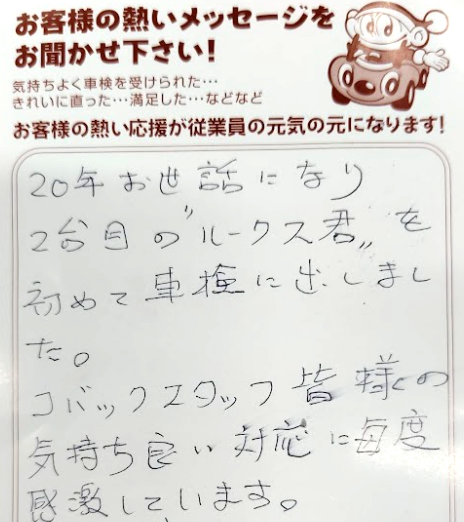 お客様の熱いメッセージを
お聞かせ下さい!
気持ちよく車検を受けられた…
きれいに直った…満足した…などなど
お客様の熱い応援が従業員の元気の元になります!
20年お世話になり
2台目の〝ルークス君〟を
初めて車検に出しまし
た。
コバックスタッフ皆様の
気持ち良い対応に毎度
感激しています。